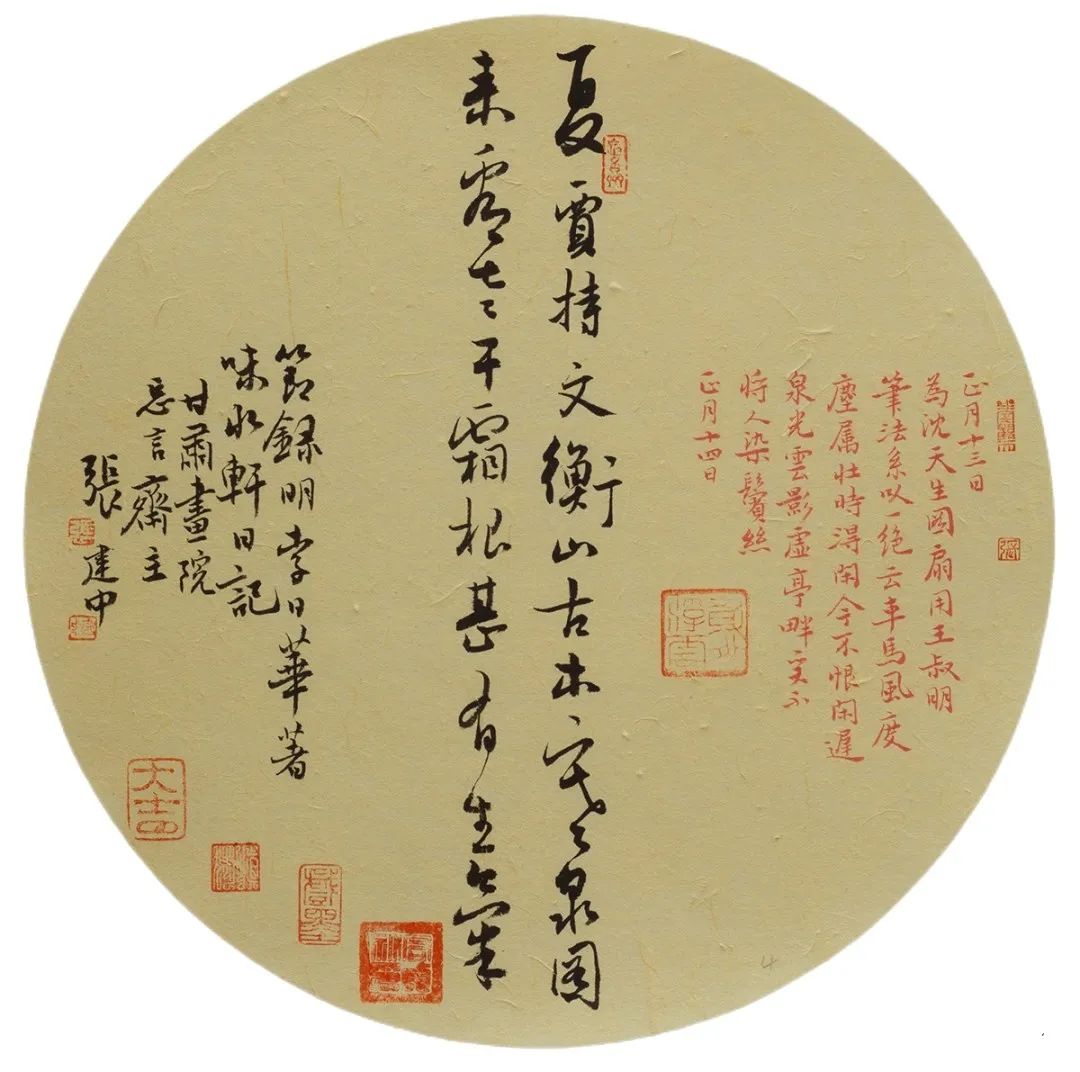 正月十三日
為沈天生圖扇用王叔明
筆法系以一絕云車馬風度
塵属壮時得閑今不恨閑遲
泉光雲影虛亭畔实不
将人染鬢絲
正月十四日
夏賈持文衡山古木寒泉图
来干霜根甚有生氣
節録明李日華著
味水軒日記
甘肅畫院
忘言齋主
張建中